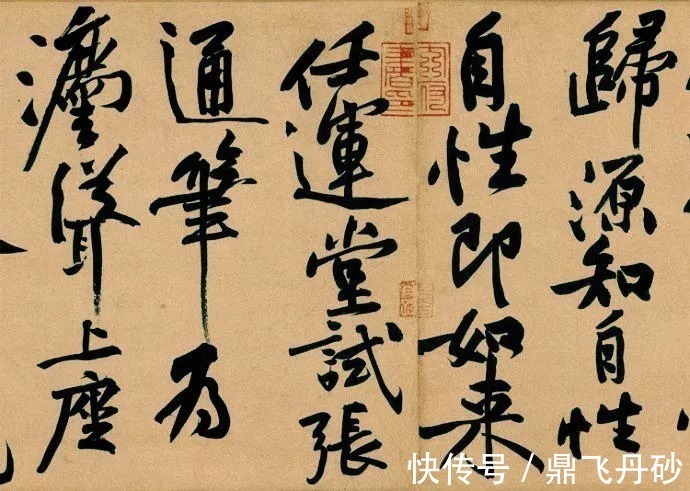 歸源知自性
自性即如来
任運堂試張
通筆為
灋聳上座
快传号 / 鼎飞丹砂